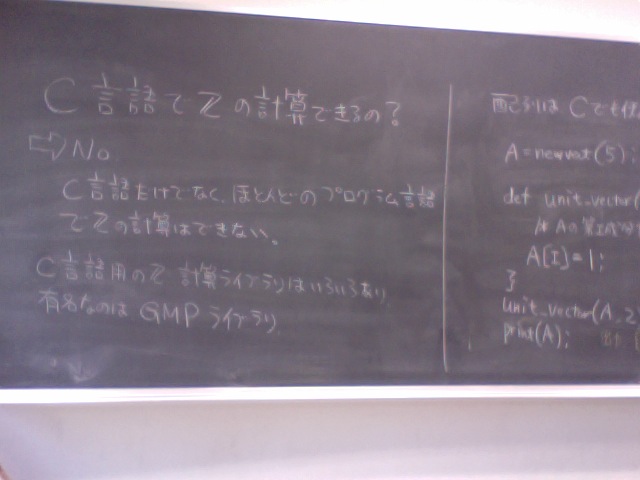 C言語でℤの計算できるの?
⇨No
C言語だけでなく、ほとんどのプログラム言語
でℤの計算はできない。
C言語用のℤ計算ライブラリはいろいろあり
有名なのは GMPライブラリ
配るいは Cでも
A=newvect(5);
def unit_vector(
/* Aの第I成分
A[I]=1;
}
unit_vector(A,2
print(A);